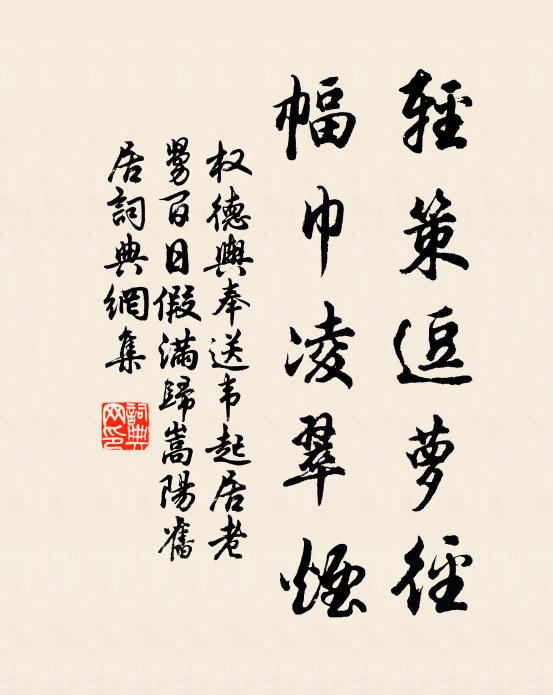 輕策逗萝徑
幅巾凌翠煙
权德輿奉送韦起居老
舅百日假滿歸嵩陽舊
居詞典網集
詞典
网印